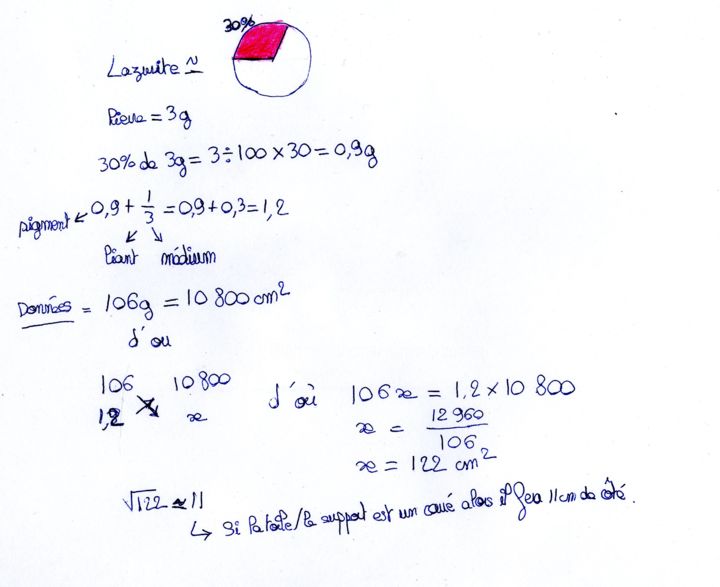 30%
Lazurite ≃
Pierre = 3g
30% de 3g = 3÷100×30 = 0,9g
pigment ← 0,9 + 1/3 = 0,9 + 0,3 = 1,2
liant médium
Données = 106g = 10 800 cm²
d'ou
106 10 800 d'où 106x = 1,2 × 10 800
1,2 x x = 12 960/106
x = 122 cm²
√122 ≃ 11
↳ Si la toile/le support est un carré alors il fera 11cm de côté.